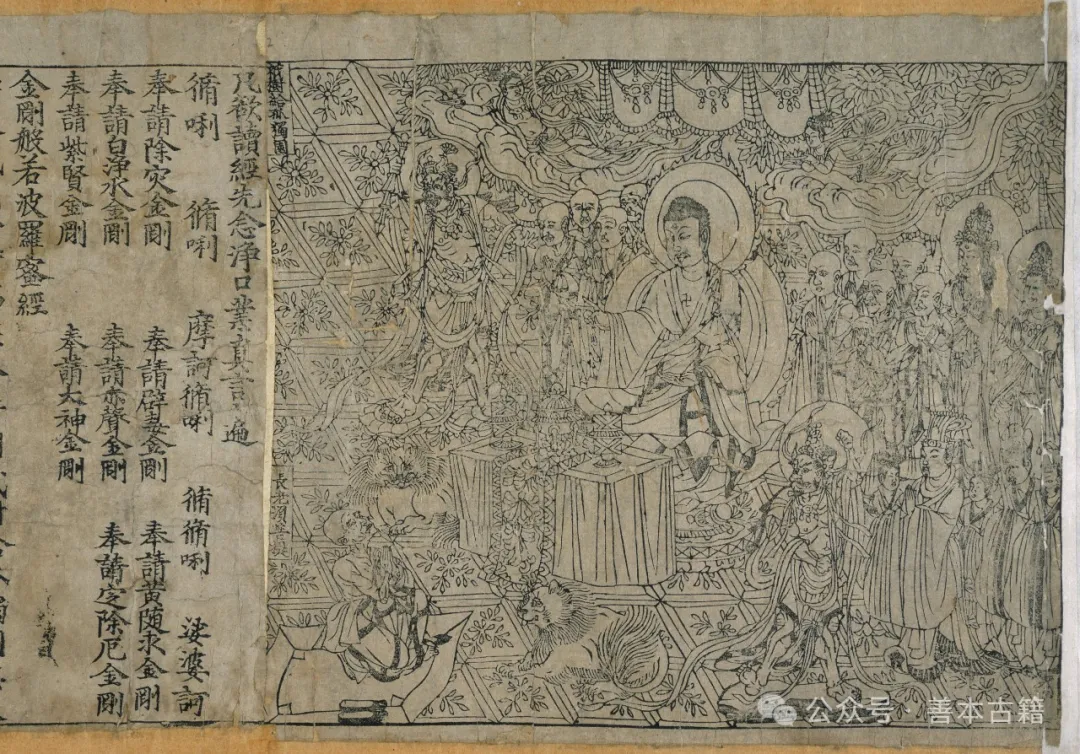 祇樹給孤獨園
長老須菩提
凡欲讀經先念淨口業真言一遍
脩唎 脩唎 摩訶脩唎 脩脩唎 娑婆訶
奉請除灾金剛 奉請辟毒金剛 奉請黄随求金剛
奉請白淨水金剛 奉請赤聲金剛 奉請定除厄金剛
奉請紫賢金剛 奉請大神金剛
金剛般若波羅蜜經
公众号 · 善本古籍